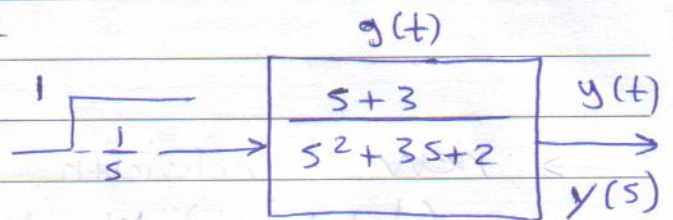 g(t)
1
1/s
s+3
s²+3s+2
y(t)
y(s)